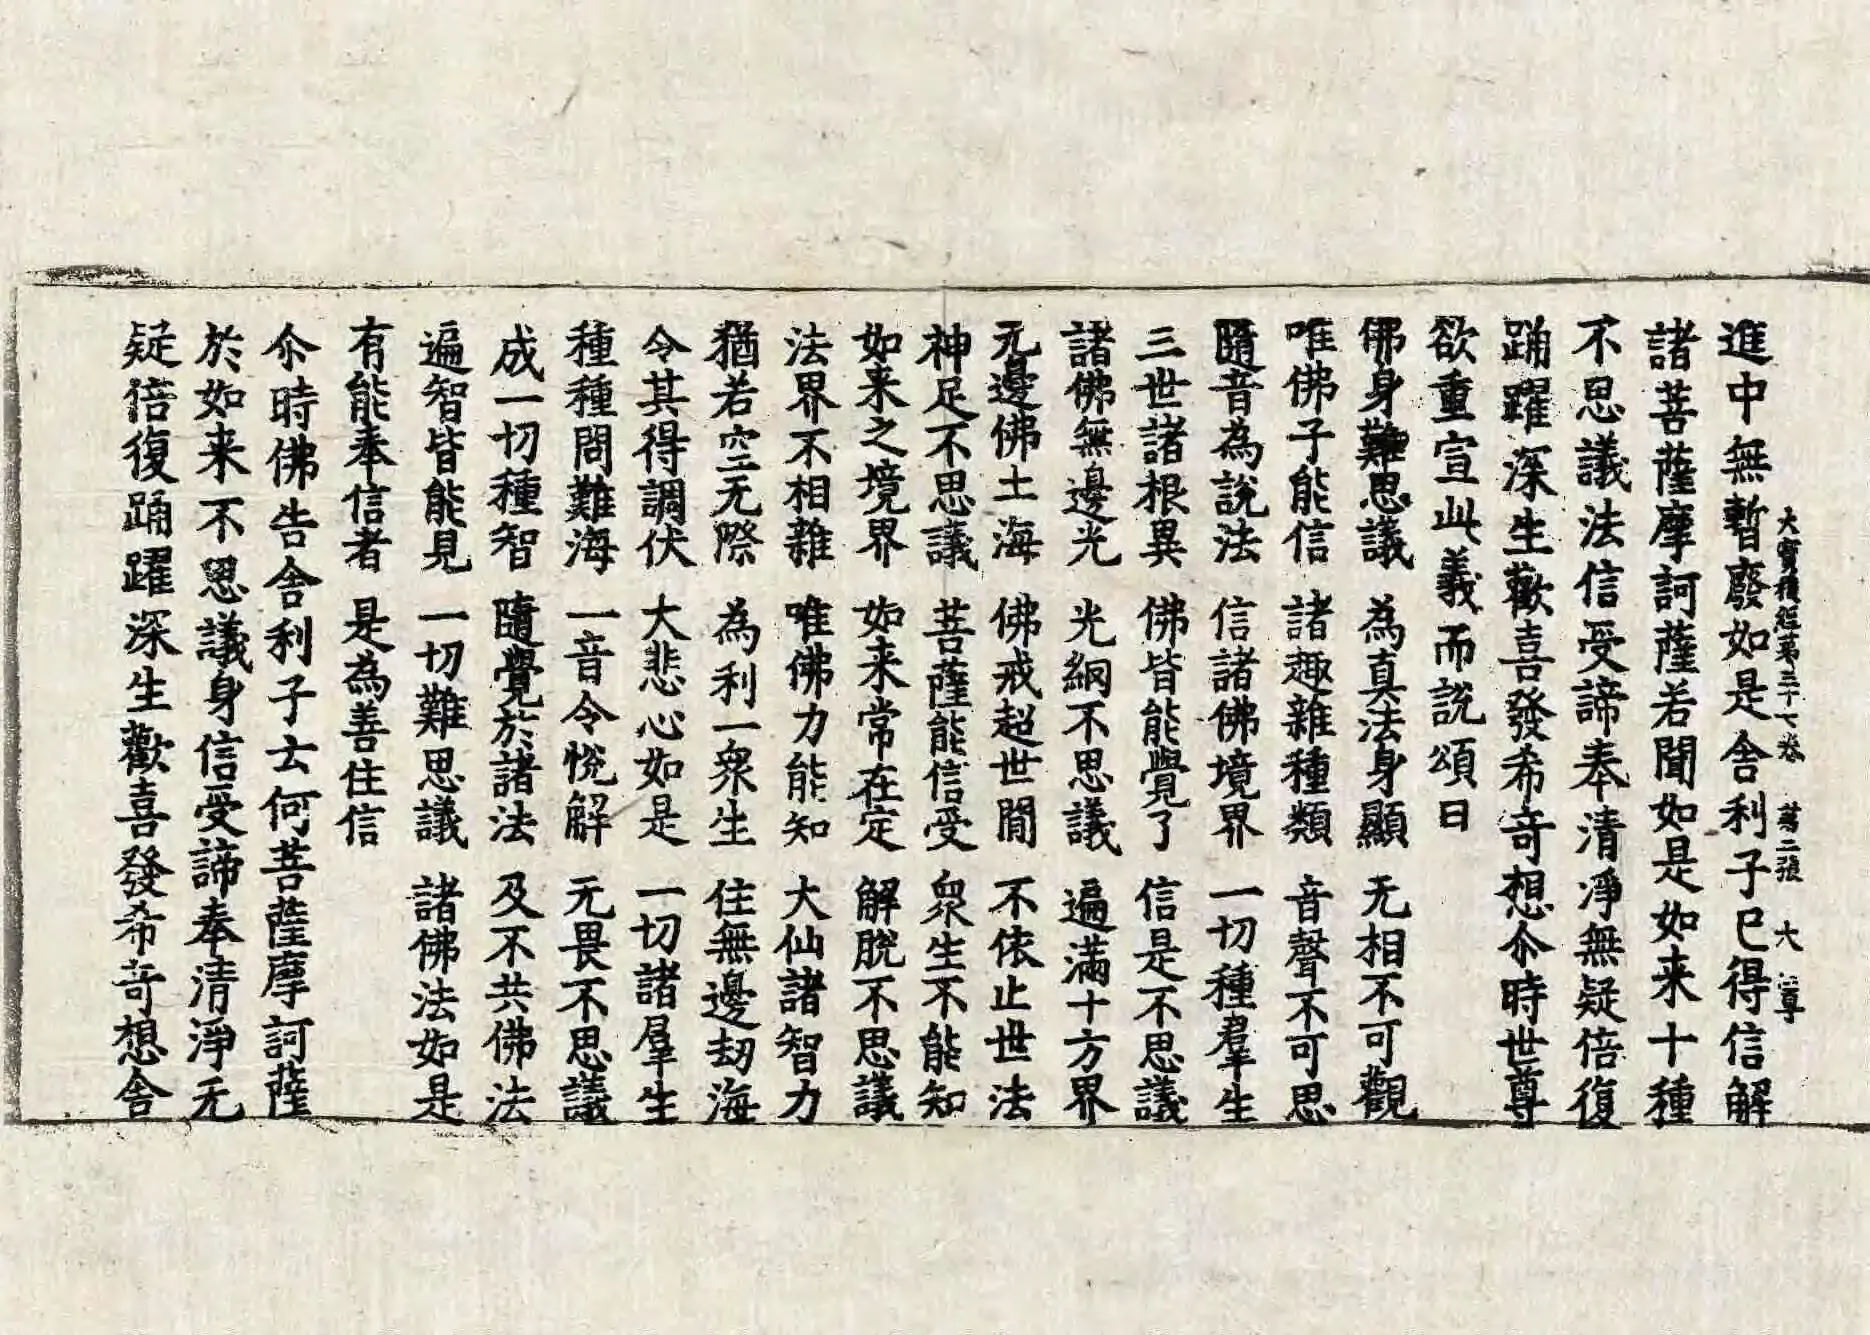 大寳積經第三十七卷 第二張 大 尊
進中無暫廢如是舍利子已得信解
諸菩薩摩訶薩若聞如是如来十種
不思議法信受諦奉清淨無疑倍復
踊躍深生歡喜發希竒想尒時世尊
欲重宣此義而說頌曰
佛身難思議 為真法身顯 无相不可觀
唯佛子能信 諸趣雜種類 音聲不可思
隨音為說法 信諸佛境界 一切種羣生
三世諸根異 佛皆能覺了 信是不思議
諸佛無邊光 光網不思議 遍滿十方界
无邊佛土海 佛戒超世間 不依止世法
神足不思議 菩薩能信受 衆生不能知
如来之境界 如来常在定 解脫不思議
法界不相雜 唯佛力能知 大仙諸智力
猶若空无際 為利一衆生 住無邊劫海
令其得調伏 大悲心如是 一切諸羣生
種種問難海 一音令悅解 无畏不思議
成一切種智 隨覺於諸法 及不共佛法
遍智皆能見 一切難思議 諸佛法如是
有能奉信者 是為善住信
尒時佛告舍利子云何菩薩摩訶薩
於如来不思議身信受諦奉清淨无
疑倍復踊躍深生歡喜發希竒想舍